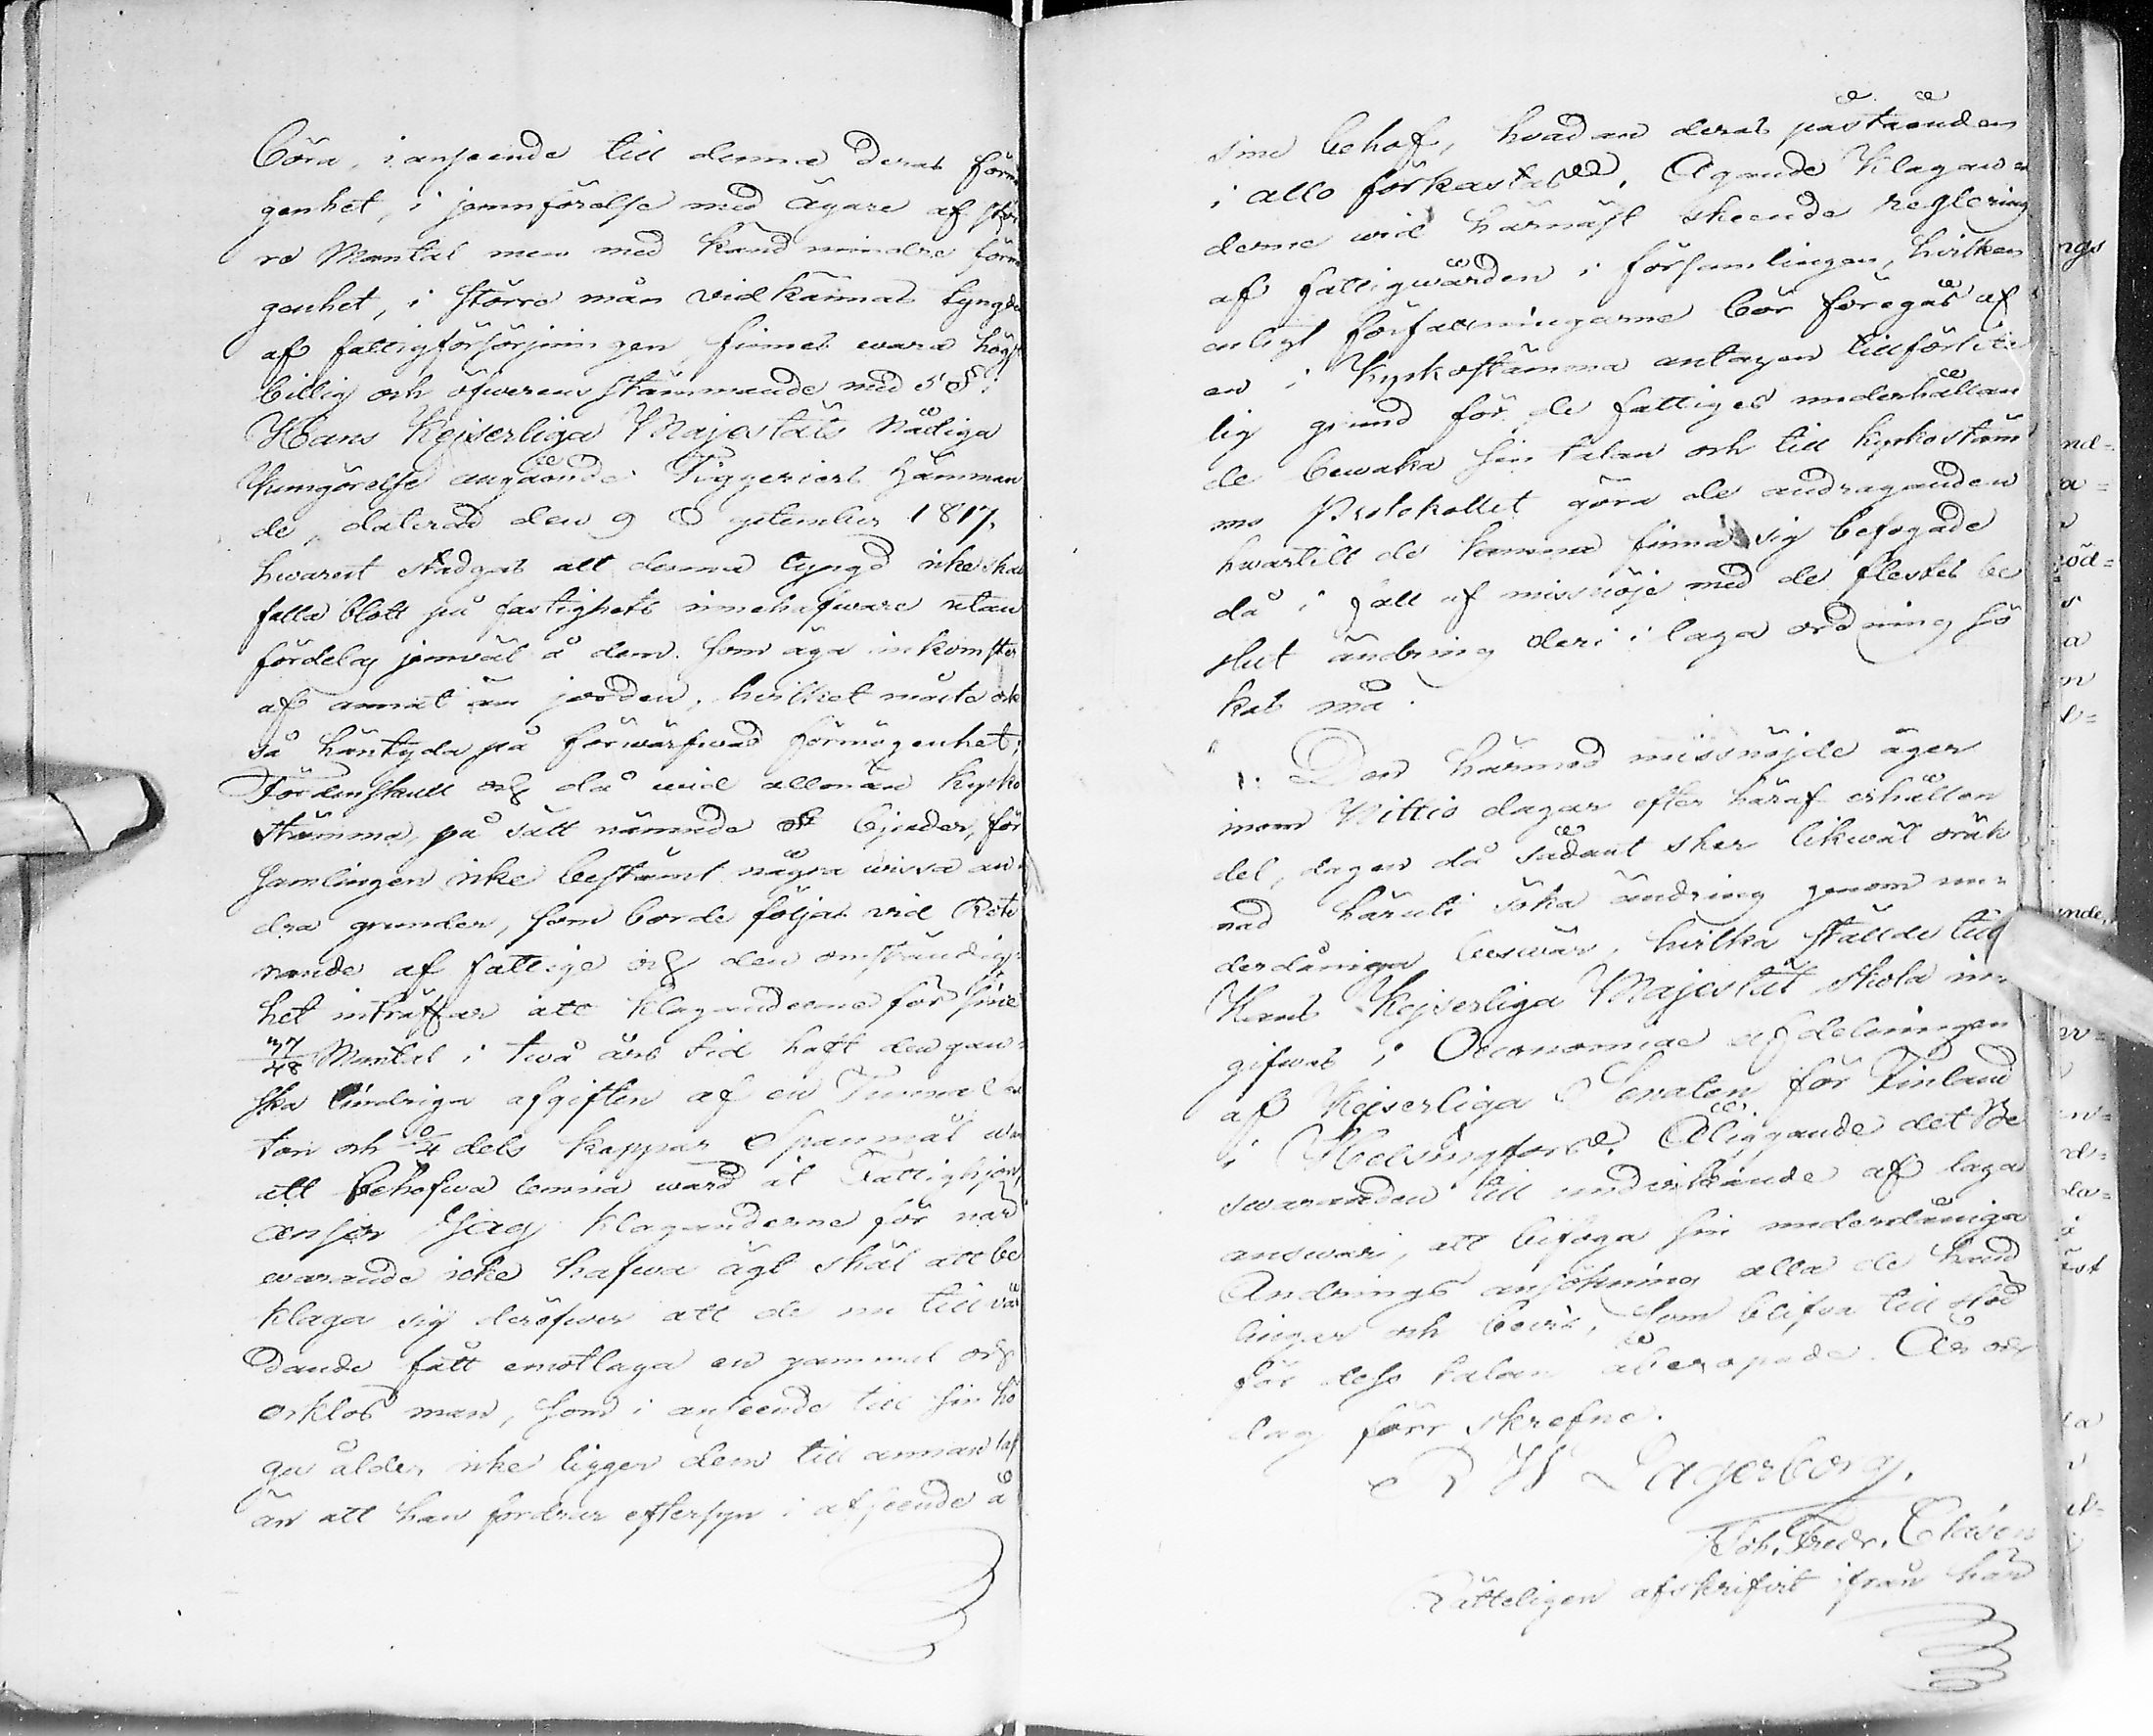 böra, i anseende till denna deras förmö
genhet, i jemnförelse med ägare af stör
re Mantal men med kand mindre förmö
genhet, i större mån vidkännas tyngden
af fattigförsörjningen, finnes wara högst
billig och öfwerensstämmande med 5 § i
Hans Kejserliga Majestäts Nådiga
Kungörelse angående Tiggeriers hämman
de, daterad den 9 September 1817,
hwarest stadgas att denna tyngd icke skall
falla blott på fastighets innehafware utan
fördelas jemväl å dem som äga inkomster
af annat än jorden, hvilket måste ock
så häntyda på förwärfwad förmögenhet;
Fördenskull och då wid allmän kyrko
stämma, på sätt nämnde är bjuder, för
samlingen icke bestämt några wissa an
dra grunder, som borde följas vid Rote
rande af fattige och den omständig=
het inträffar att klaganderne för sine
37/48 Mantal i twå års tid haft den gan=
ska lindriga afgiften af en Tunna
ton och ¾ dels kappar Spanmål utan
att behöfwa lemna ward åt Fattighjon,
anser Jag klaganderne för när
warande icke hafwa ägt skäl att be
klaga sig deröfwer att de nu till vår
dande fått emottaga en gammal och
orklös man, som i anseende till sin hö
ga ålder icke ligger dem till annan last
än att han fordrar eftersyn i afseende å
sine behof, hvadan deras påståenden
i allo förkastas. Ägande klagan=
derne wid härnäst skeende reglering
af fattigwården i församlingen, hvilken
enligt författningarne bör föregås af
en i Kyrkostämma antagen tillförlite
lig grund för de fattiges underhållan
de bewaka sin talan och till kyrkostäm
mo Protokollet göra de andraganden
hwartill de kunna finna sig befogade
då i fall af missnöje med de flestes be
slut ändring deri i laga ordning sö
kas må.
Den härmed missnöjde äger
inom Nittio dagar efter häraf erhållen
del, dagen då sådant sker likwäl oräk
nad häruti söka ändring genom un=
derdåniga beswär, hvilka ställde till
Hans Kejserliga Majestät skola in=
gifwas i Oeconomiae afdelningen
af Kejserliga Senaten för Finland
i Helsingfors. Åliggande det Be
swäranden till undwikande af laga
answar, att bifoga sin underdåniga
Ändrings ansökning alla de hand
lingar och bevis, som blifva till stöd
för dess talan åberopade. År och
dag förr skrefne.
R W Lagerborg.
Joh. Fredr. Clasén
Rätteligen afskrifvit ifrån här